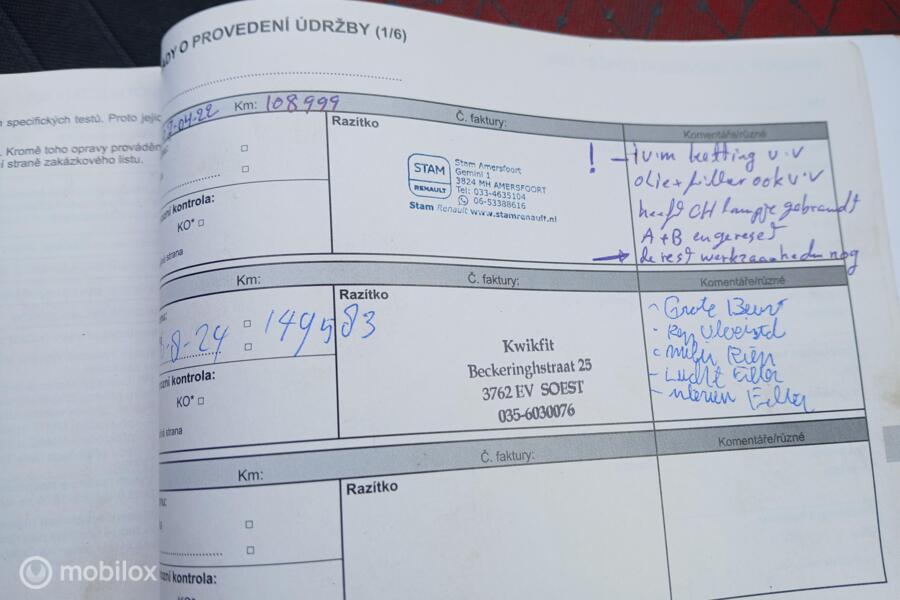 DY O PROVEDENÍ ÚDRŽBY (1/6)
specifických testů. Proto jejic
. Kromě toho opravy prováděn
í straně zakázkového listu.
-04-22 Km: 108999 Č. faktury: Komentáře/různé
Razítko
STAM
RENAULT
Stam Amersfoort
Gemini 1
3824 MH AMERSFOORT
Tel: 033-4635104
06-53388616
Stam Renault www.stamrenault.nl
! - i.v.m ketting v.v
olie + filter ook v.v
heeft OH lampje gebrandt
A + B en gereset
→ de rest werkzaamheden nog
zní kontrola:
KO* □
strana
Km: Č. faktury: Komentáře/různé
Razítko
-8-24 149583
Kwikfit
Beckeringhstraat 25
3762 EV SOEST
035-6030076
- Grote Beurt
- Lucht Filter
- interieur Filter
zní kontrola:
KO* □
strana
Km: Č. faktury: Komentáře/různé
Razítko
zní kontrola:
mobilox